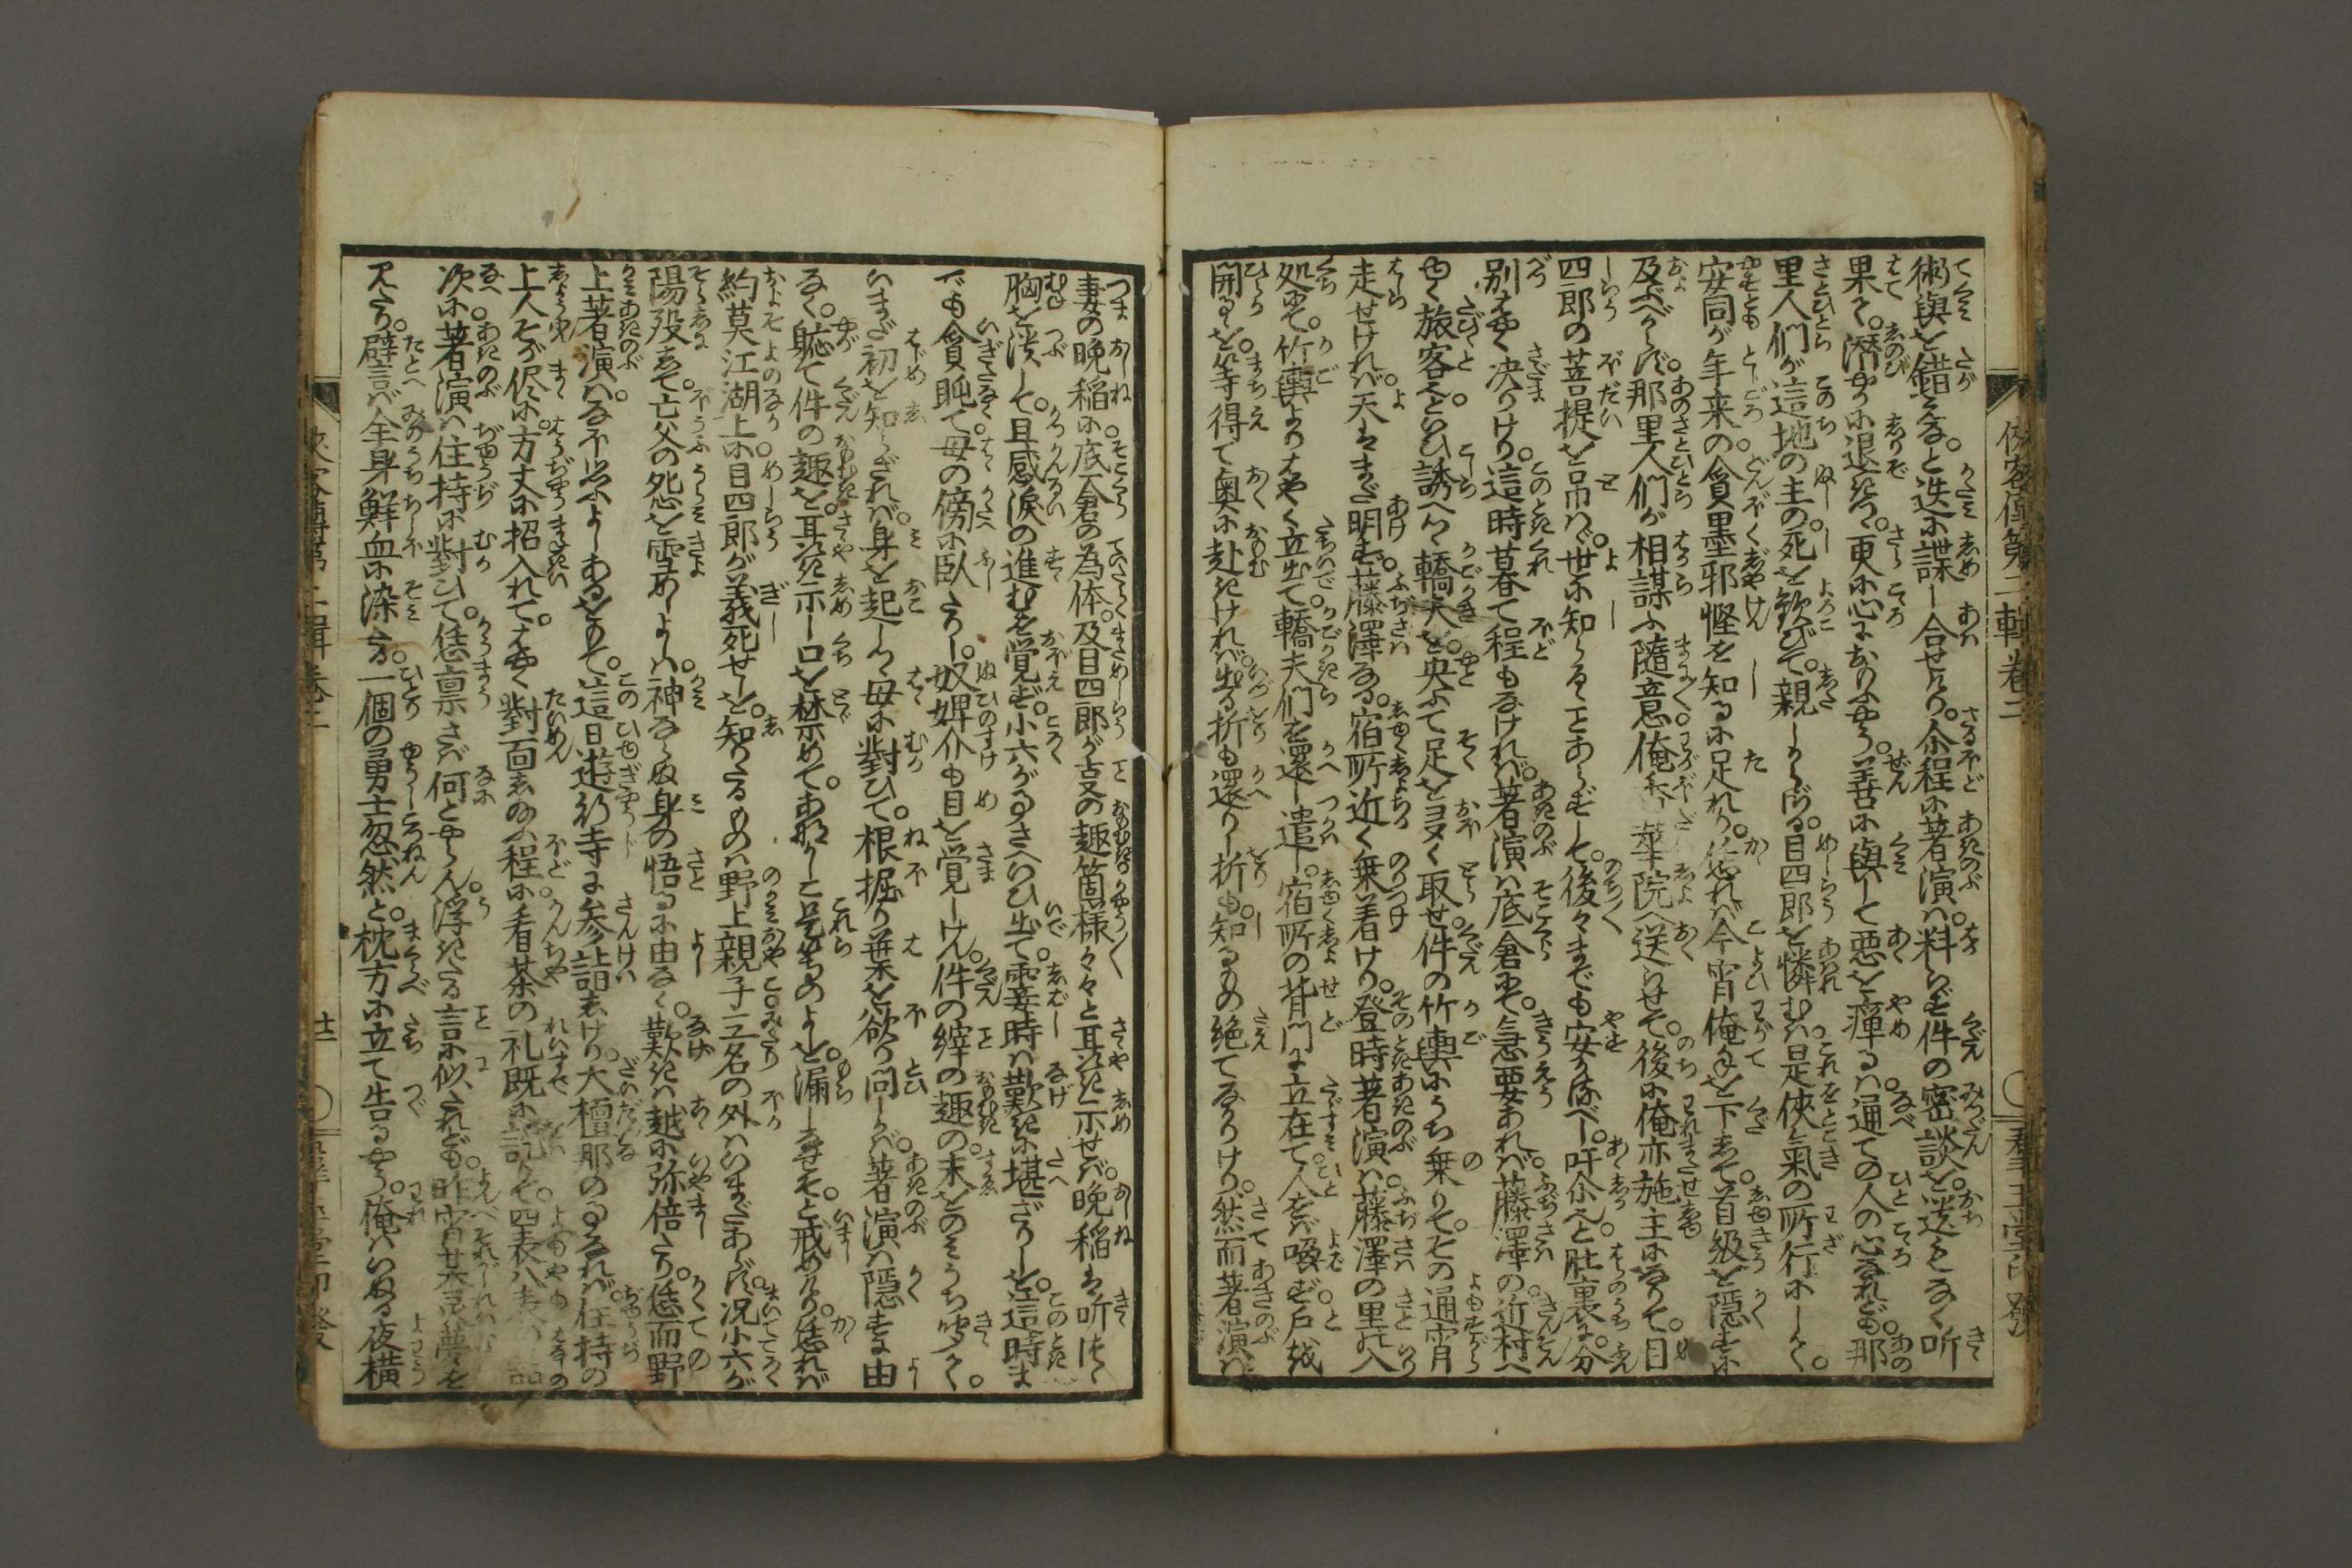 術與を錯へるな。と迭に諜し合せけり。介程に著演は。料らず件の密談を。送もなく听
果て。潜やかに退きつゝ。更に心におもふやう。善に與して悪を瘴るは。通ての人の心なれども。那
里人們が這地の主の。死を歓びて。親しからざる。目四郎を憐むは。是侠氣の所行にしかく。
安同が年来の。貪墨邪慳を知るに足れり。恁れば今宵俺手を下して。首級を隠すに
及ぶべからず。那里人們が相謀ふ隨意。俺 華院へ送らせて。後に俺亦施主になりて。目
四郎の菩提を吊はゞ。世に知らるゝことあらずして。後々までも安かるべし。吁尒也と肚裏に。分
別はやく決りけり。這時暮て程もなければ。著演は底倉にて。急要あれば藤澤の。近村へ
ゆく旅客也といひ誘へて。轎夫を。央ふて足をヨヌく取せ。件の竹輿にうち乗りて。その通宵
走せければ。天はまだ明ず。藤澤なる。宿所近く乗着けり。登時著演は。藤澤の里の入
処にて。竹輿よりはやく立出て。轎夫們を還し遣し。宿所の背門に立在て。人をば喚ず戸を
開るを。等得て奥に赴きければ。出る折も還りし折も。知るもの絶てなかりけり。然而著演は
侠客傳第二輯巻二
妻の晩稲に底倉の為体。及目四郎が亥の趣。箇様々々と耳語示せば。晩稲は听つゝ
胸を潰して。且感涙の進むを覚ず。小六がうへさへいひ出て。霎時は歎きに堪ざりしを。這時ま
でも貪眠て。母の傍に臥たりし。奴婢介も目を覚しけん。件の縡の趣の。末をのみうち聞く。
いまだ初を知らざれば。身を起しつゝ母に對ひて。根掘り葉を欲り問しかば。著演は隠すに由
なく。躯て件の趣を。耳語示し口を禁めて。あなかしこ是等のよしを。漏しなせそと戒めけり。恁れば
約莫江湖上に目四郎が義死せしを。知りたるものは野上親子三名の外はいまだあらず。况小六が
陽歿して。亡父の死を雪めしよしは。神ならぬ身の悟るに由なく。歎きは越に弥倍たり。恁而野
上著演は。なほ思ふよしあるをもて。這日遊行寺に参詣しけり。大檀那の事なれば。住持の
上人そが侭に。方丈に招入れて。はやく對面しぬる程に。看茶の礼既に訖りて。四表八表の話
次に。著演は住持に對ひて。恁禀さば何とやらん。浮きたる言に似たれども。昨宵某夢を
見たり。譬ば全身鮮血に染みたる。一個の勇士忽然と。枕方に立て告るやう。俺はいぬる夜横